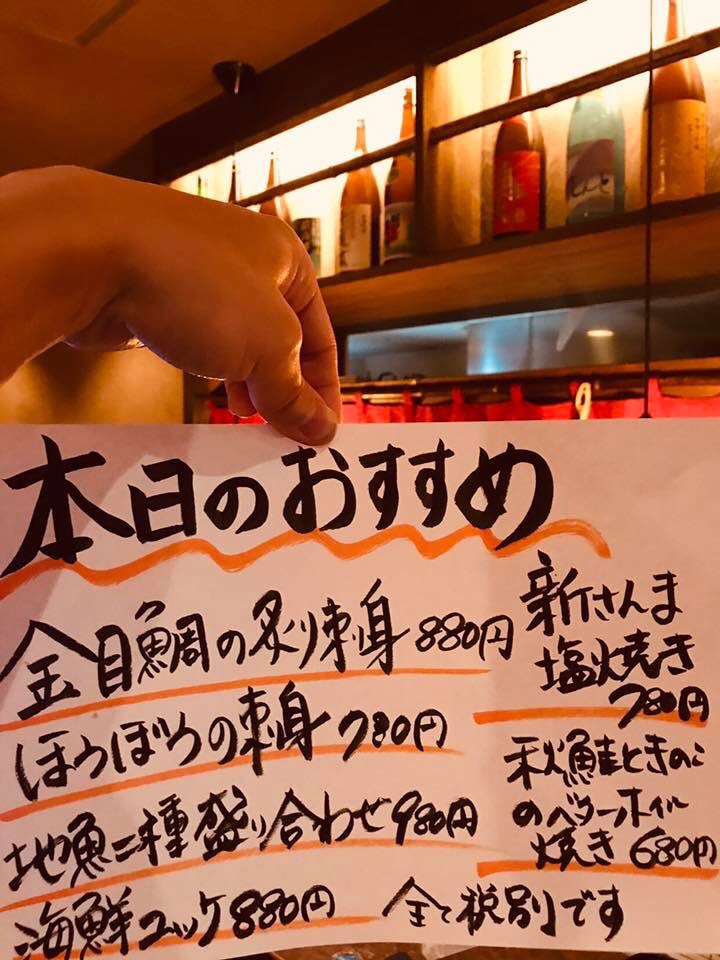 本日のおすすめ
金目鯛の炙り刺身 880円
ほうぼうの刺身 780円
地魚二種盛り合わせ 980円
海鮮ユッケ 880円
新さんま
塩焼き
780円
秋鮭ときのこ
のバターホイル
焼き 680円
全て税別です